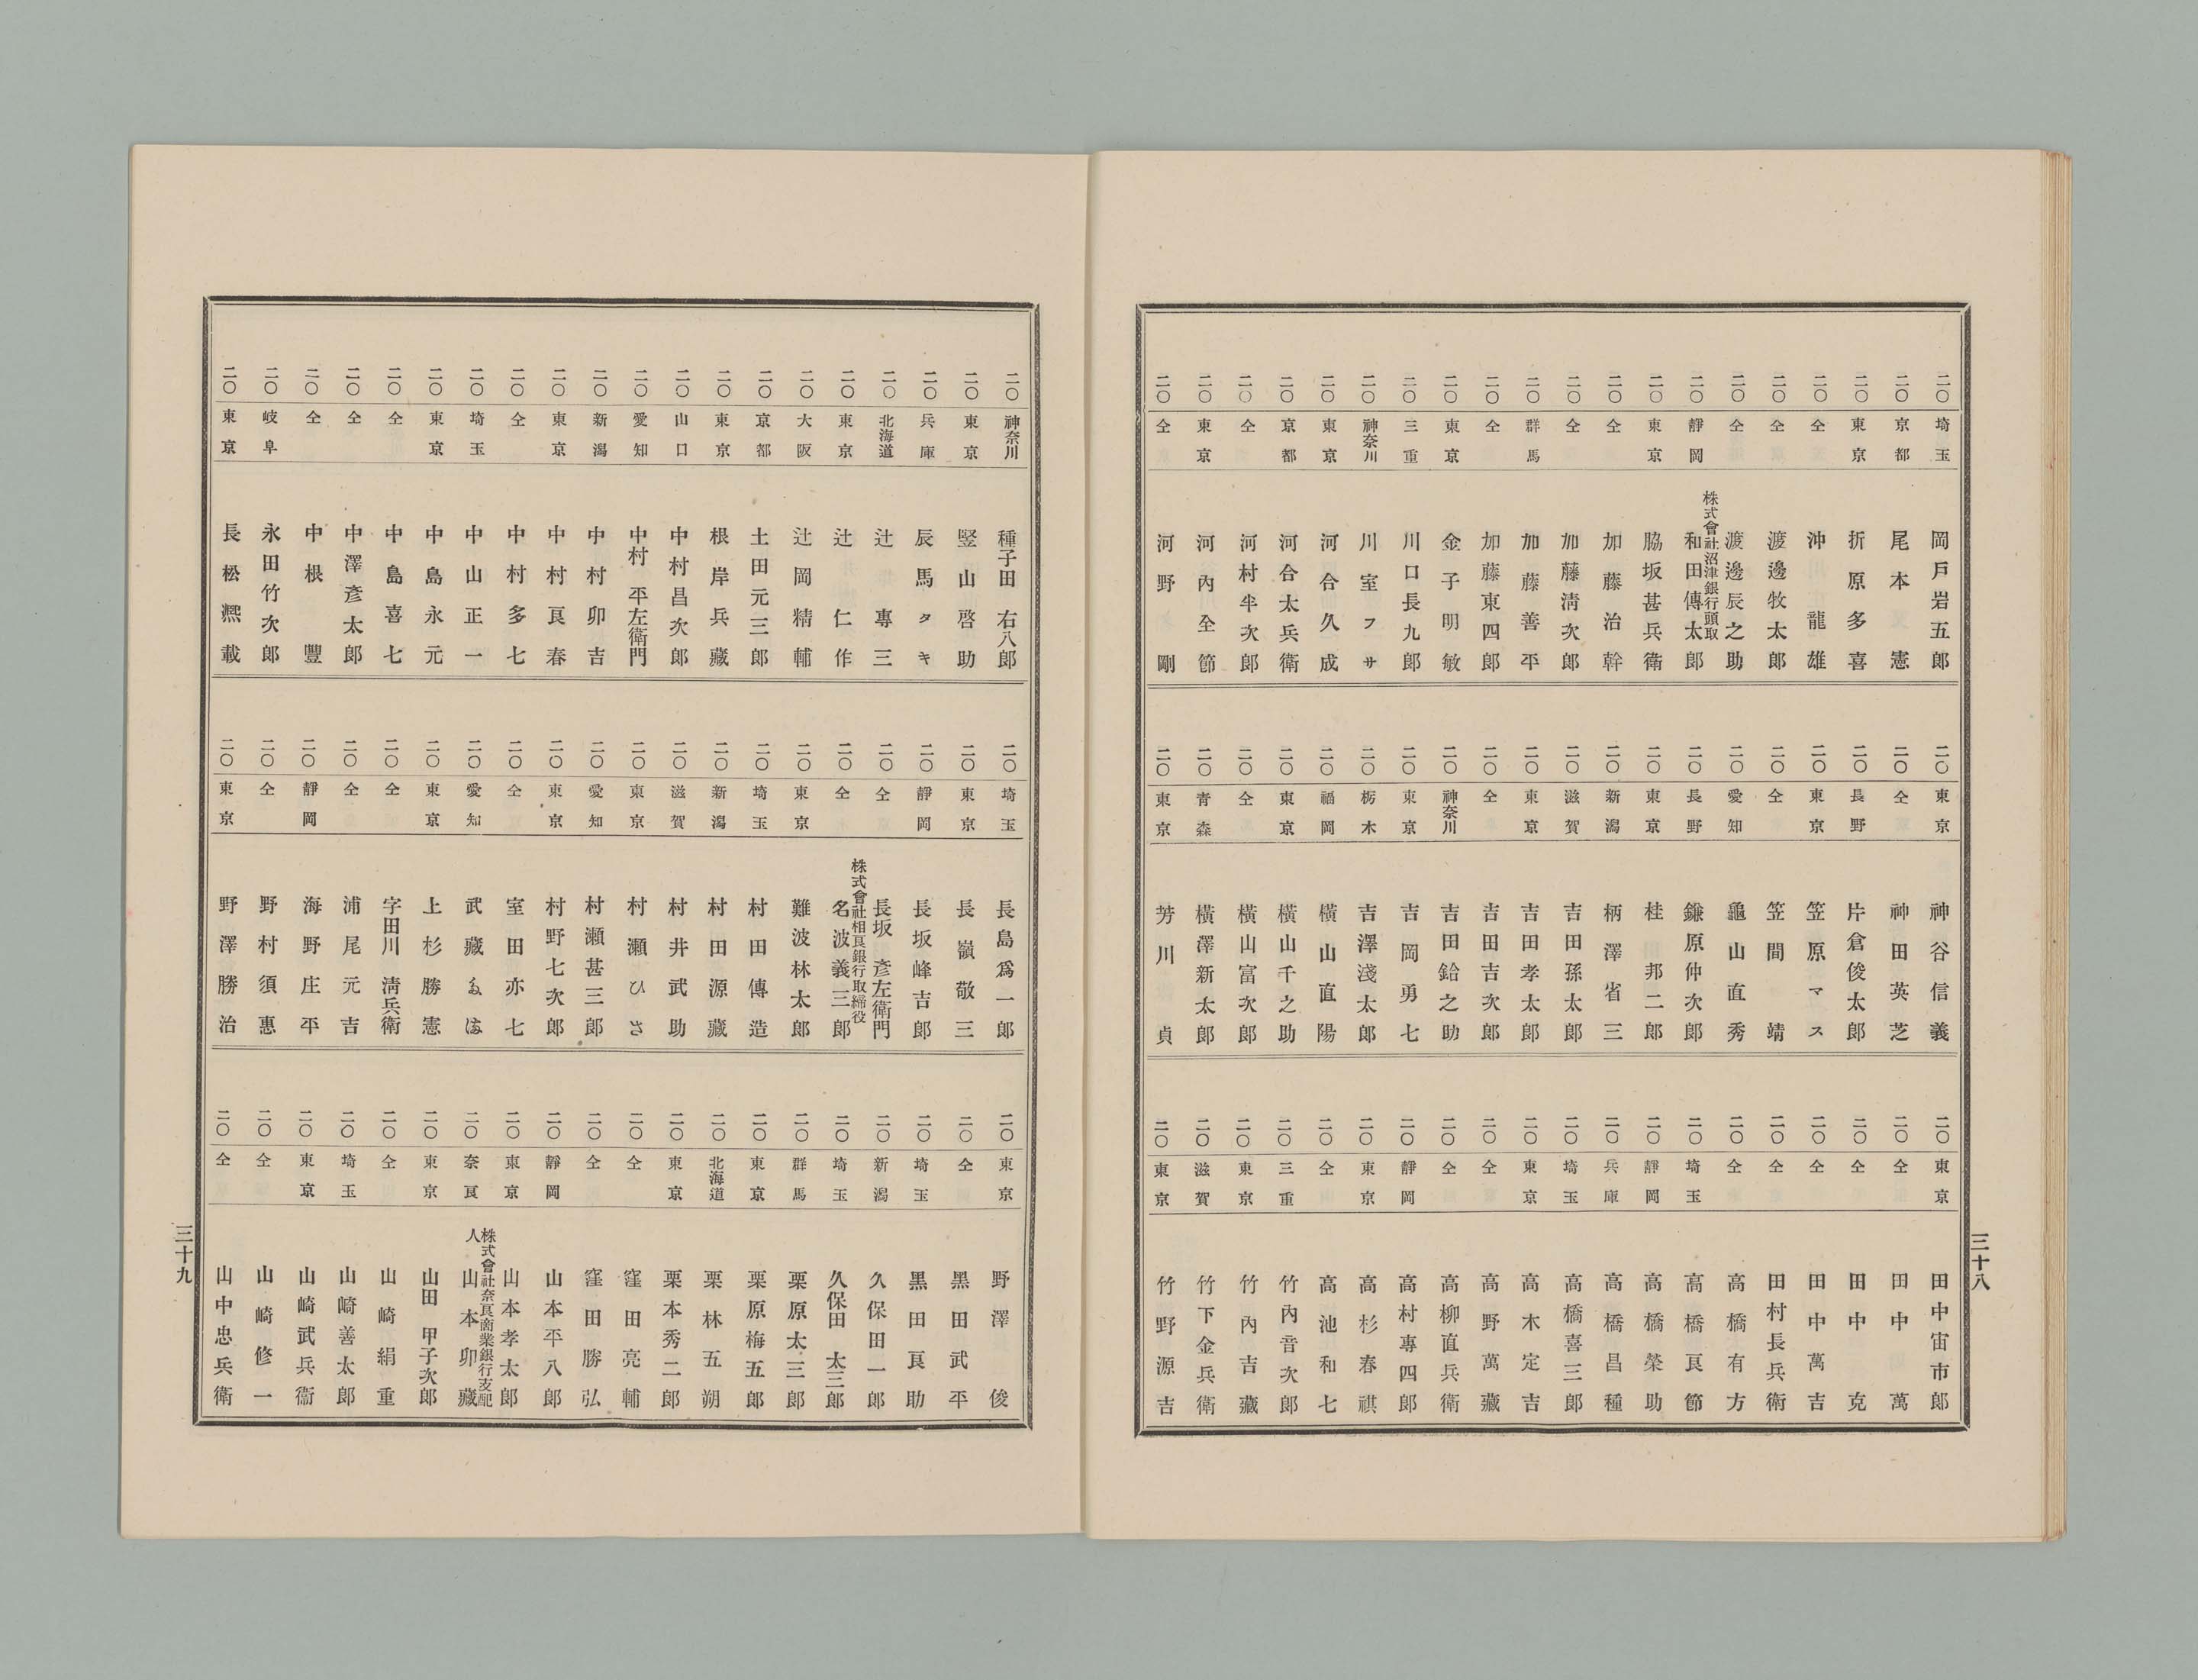 二〇 埼玉 岡戶岩五郎
二〇 京都 尾本憲
二〇 東京 折原多喜
二〇 仝 沖龍雄
二〇 仝 渡邊牧太郎
二〇 仝 渡邊辰之助
二〇 靜岡 株式會社沼津銀行頭取 和田傳太郎
二〇 東京 脇坂甚兵衛
二〇 仝 加藤治幹
二〇 仝 加藤淸次郎
二〇 群馬 加藤善平
二〇 仝 加藤東四郎
二〇 東京 金子明敏
二〇 三重 川口長九郎
二〇 神奈川 川室フサ
二〇 東京 河合久成
二〇 京都 河合太兵衛
二〇 仝 河村半次郎
二〇 東京 河內全節
二〇 仝 河野剛
二〇 東京 神谷信義
二〇 仝 神田英芝
二〇 長野 片倉俊太郎
二〇 東京 笠原マス
二〇 仝 笠間靖
二〇 愛知 龜山直秀
二〇 長野 鎌原仲次郎
二〇 東京 桂邦二郎
二〇 新潟 柄澤省三
二〇 滋賀 吉田孫太郎
二〇 東京 吉田孝太郎
二〇 仝 吉田吉次郎
二〇 神奈川 吉田鉿之助
二〇 東京 吉岡勇七
二〇 栃木 吉澤淺太郎
二〇 福岡 橫山直陽
二〇 東京 橫山千之助
二〇 仝 橫山富次郎
二〇 青森 橫澤新太郎
二〇 東京 芳川貞
二〇 東京 田中宙市郎
二〇 仝 田中萬
二〇 仝 田中克
二〇 仝 田中萬吉
二〇 仝 田村長兵衛
二〇 仝 高橋有方
二〇 埼玉 高橋良節
二〇 靜岡 高橋榮助
二〇 兵庫 高橋昌種
二〇 埼玉 高橋喜三郎
二〇 東京 高木定吉
二〇 仝 高野萬藏
二〇 仝 高柳直兵衛
二〇 靜岡 高村專四郎
二〇 東京 高杉春祺
二〇 仝 高池和七
二〇 三重 竹內音次郎
二〇 東京 竹內吉藏
二〇 滋賀 竹下金兵衛
二〇 東京 竹野源吉
三十八
二〇 神奈川 種子田右八郎
二〇 東京 竪山啓助
二〇 兵庫 辰馬タキ
二〇 北海道 辻專三
二〇 東京 辻仁作
二〇 大阪 辻岡精輔
二〇 京都 土田元三郎
二〇 東京 根岸兵藏
二〇 山口 中村昌次郎
二〇 愛知 中村平左衛門
二〇 新潟 中村卯吉
二〇 東京 中村良春
二〇 仝 中村多七
二〇 埼玉 中山正一
二〇 東京 中島永元
二〇 仝 中島喜七
二〇 仝 中澤彥太郎
二〇 仝 中根豐
二〇 岐阜 永田竹次郎
二〇 東京 長松凞載
二〇 埼玉 長島爲一郎
二〇 東京 長嶺敬三
二〇 靜岡 長坂峰吉郎
二〇 仝 長坂彥左衛門
二〇 仝 株式會社相良銀行取締役 名波義三郎
二〇 東京 難波林太郎
二〇 埼玉 村田傳造
二〇 新潟 村田源藏
二〇 滋賀 村井武助
二〇 東京 村瀨ひさ
二〇 愛知 村瀨甚三郎
二〇 東京 村野七次郎
二〇 仝 室田亦七
二〇 愛知 武藏
二〇 東京 上杉勝憲
二〇 仝 宇田川淸兵衛
二〇 仝 浦尾元吉
二〇 靜岡 海野庄平
二〇 仝 野村須惠
二〇 東京 野澤勝治
二〇 東京 野澤俊
二〇 仝 黑田武平
二〇 埼玉 黑田良助
二〇 新潟 久保田一郎
二〇 埼玉 久保田太三郎
二〇 群馬 栗原太三郎
二〇 東京 栗原梅五郎
二〇 北海道 栗林五朔
二〇 東京 栗本秀二郎
二〇 仝 窪田亮輔
二〇 仝 窪田勝弘
二〇 靜岡 山本平八郎
二〇 東京 山本孝太郎
二〇 奈良 株式會社奈良商業銀行支配人 山本卯藏
二〇 東京 山田甲子次郎
二〇 仝 山崎絹重
二〇 埼玉 山崎善太郎
二〇 東京 山崎武兵衞
二〇 仝 山崎修一
二〇 仝 山中忠兵衛
三十九